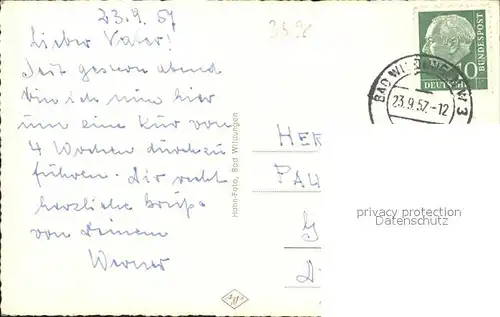 23.9.57
Lieber Vater!
Seit gestern abend
bin ich nun hier
um eine Kur von
4 Wochen durchzu
führen. Dir recht
herzliche Grüße
von Deinem
Werner
Hahn-Foto, Bad Wildungen
DEUTSCHE
BUNDESPOST
BAD WILDUNGEN
23.9.57.-12
HER
PAU
privacy protection
Datenschutz